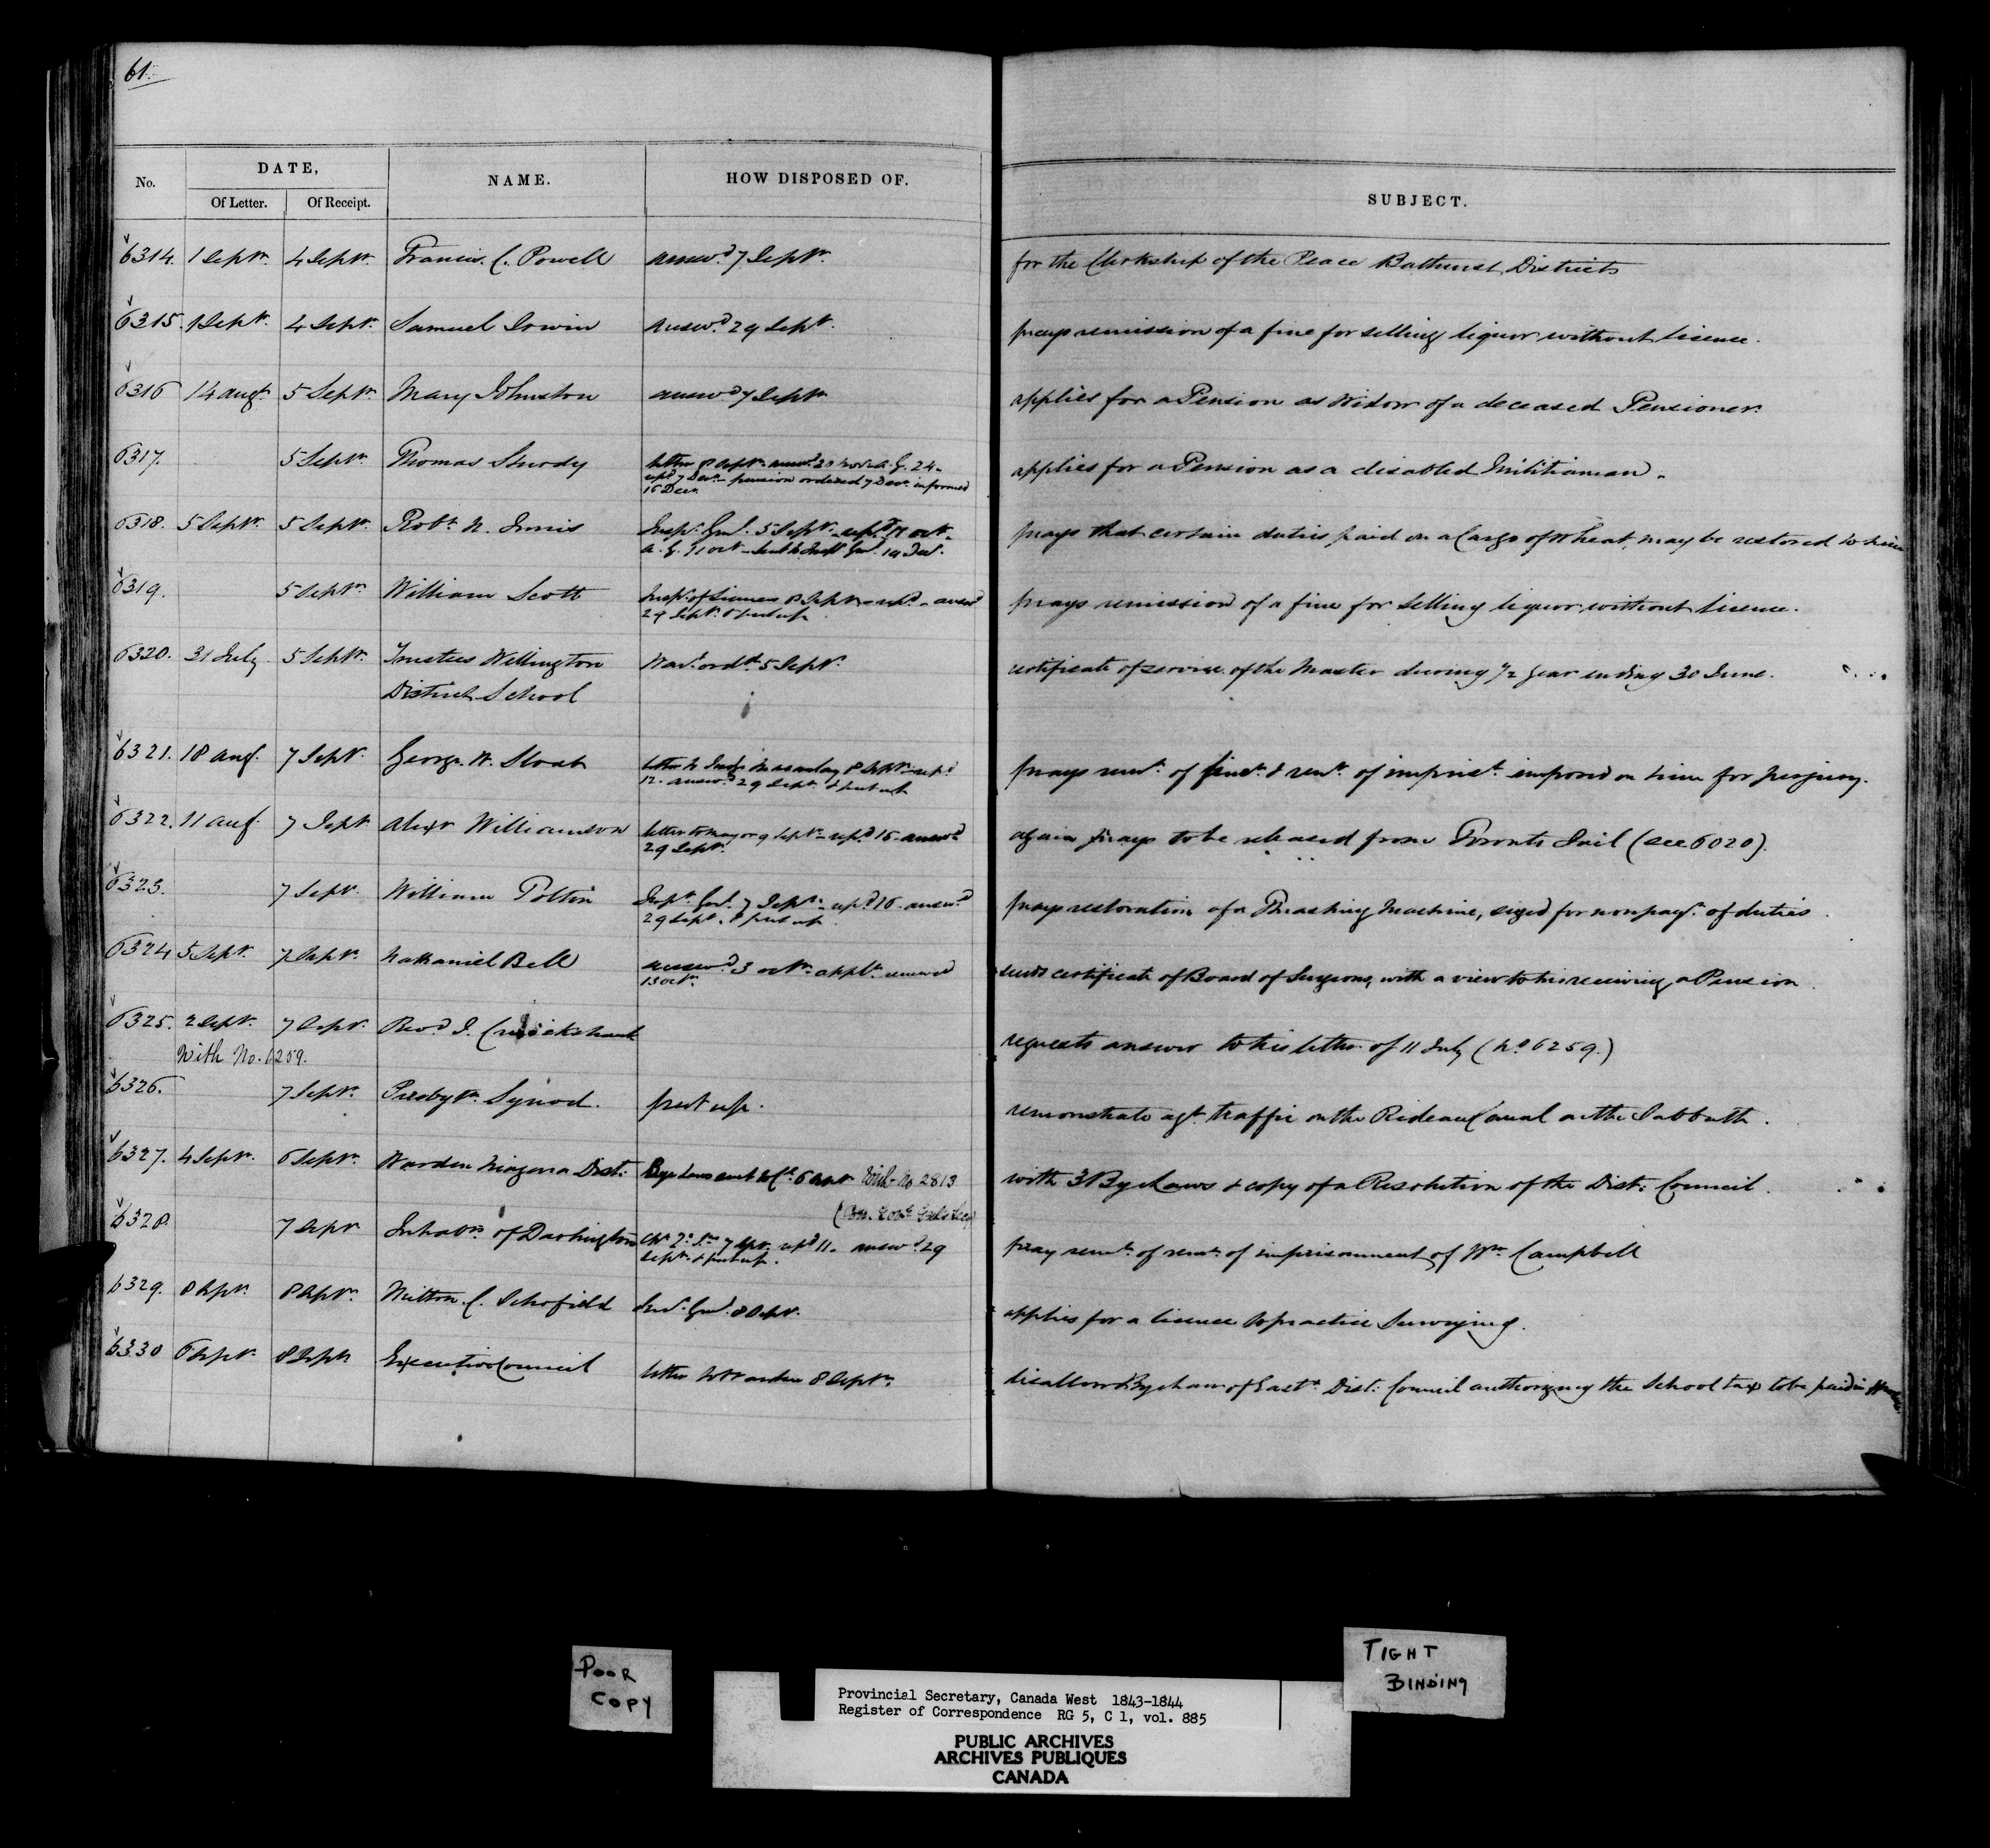 61.
No. DATE, NAME. HOW DISPOSED OF. SUBJECT.
Of Letter. Of Receipt.
6314. 1 Septr. 4 Septr. Francis C. Powell answd. 7 Septr. for the Clerkship of the Peace Bathurst District
6315. 1 Septr. 4 Septr. Samuel Irwin answd. 29 Septr. prays remission of a fine for selling liquor without licence.
6316 14 augt. 5 Septr. Mary Johnston answd 7 Septr. applies for a Pension as Widow of a deceased Pensioner.
6317. 5 Septr. Thomas letter 8 Septr. answd. 20 Novr. A. G. 24.
repd 7 Decr. pension ordered 7 Decr. informed
16 Decr. applies for a Pension as a disabled Militiaman.
6318. 5 Septr. 5 Septr. Robt. N. Innis Inspr. Genl. 5 Septr. repd. 11 octr.
A. G. octr. Inspr Genl. prays that certain duties paid on a Cargo of Wheat, may be restored to him
6319. 5 Septr. William Scott Inspr. of Licences 8 Septr. repd. answd
29 Septr. & put up prays remission of a fine for selling liquor without licence.
6320. 31 July 5 Septr. Trustees Wellington Wart. ordd. 5 Septr. certificate of service of the Master during 1/2 year ending 30 June.
District School
6321. 18 augt. 7 Septr. George W. Sloat letter to 8 Septr. repd
12. answd. 29 Septr. & put up prays remn. of fine & remn. of imprist. imposed on him for perjury.
6322. 11 augt. 7 Septr. Alexr Williamson letter to mayor 9 Septr. repd 16. answd
29 Septr. again prays to be released from Toronto Jail (see 6020).
6323. 7 Septr. William Inspr. Genl. 7 Septr. repd 16. answd
29 Septr. & put up prays restoration of a Thrashing Machine, seized for nonpayt. of duties.
6324 5 Septr. 7 Septr. Nathaniel Bell answd. 3 octr. applt. renewed
13 octr. sends certificate of Board of Surgeons, with a view to his receiving a Pension.
6325. 2 Septr. 7 Septr. Revd. J. Cruickshank requests answer to his letter of 11 July (No 6259.)
With No. 6259.
6326. 7 Septr. Presbytn. Synod. put up. remonstrate agt. traffic on the Rideau Canal on the Sabbath.
6327. 4 Septr. 6 Septr. Warden Niagara Dist: Bye Laws sent With No 2813 with 3 Bye Laws & copy of a Resolution of the Dist: Council.
6328. 7 Septr. Inhabts. of Darlington 7 Septr. repd 11. answd. 29
Septr. & put up. pray remn. of remr. of imprisonment of Wm. Campbell
6329. 8 Septr. 8 Septr. Milton C. Schofield Genl. 8 Septr. applies for a licence to practice Surveying.
6330 6 Septr. 8 Septr. Executive Council letter to Warden 8 Septr. disallow Bye Law of Eastn. Dist: Council authorizing the School tax to be paid in
POOR
COPY
TIGHT
BINDING
Provincial Secretary, Canada West 1843-1844
Register of Correspondence RG 5, C 1, vol. 885
PUBLIC ARCHIVES
ARCHIVES PUBLIQUES
CANADA